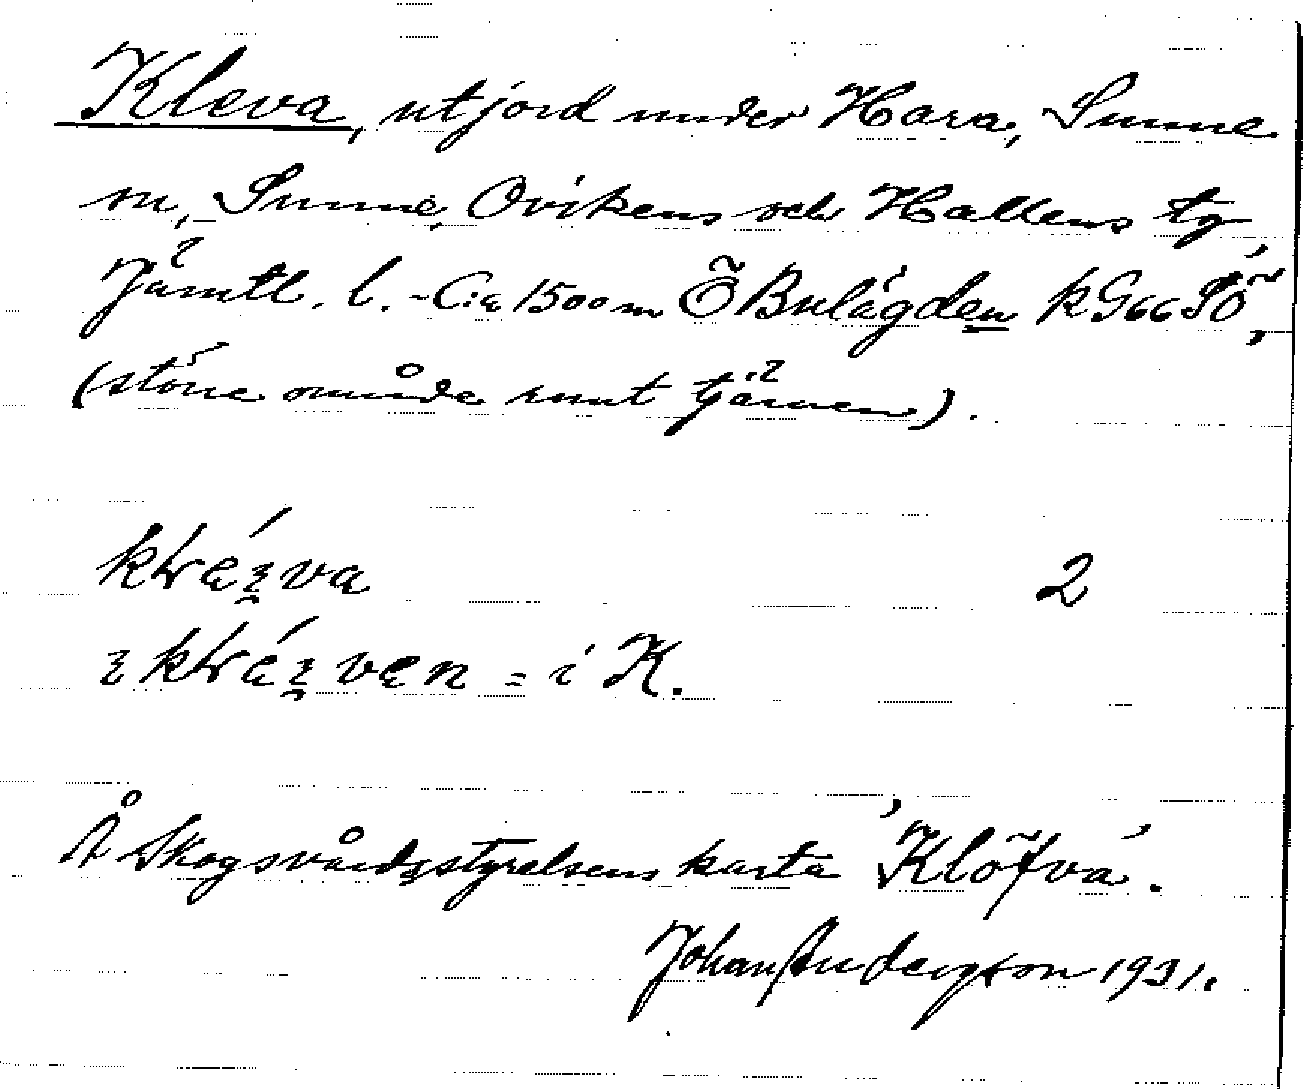 Kleva, utjord under Hara, Sunne
sn, Sunne, Ovikens och Hallens tg
Jämtl. l. - C:a 1500 m Ö Bulägden k G66 SÖ,
(större område runt tjärnen).
2
= i K.
Å Skogsvårdsstyrelsens karta 'Klöfva'.
Johan Andersson 1931.